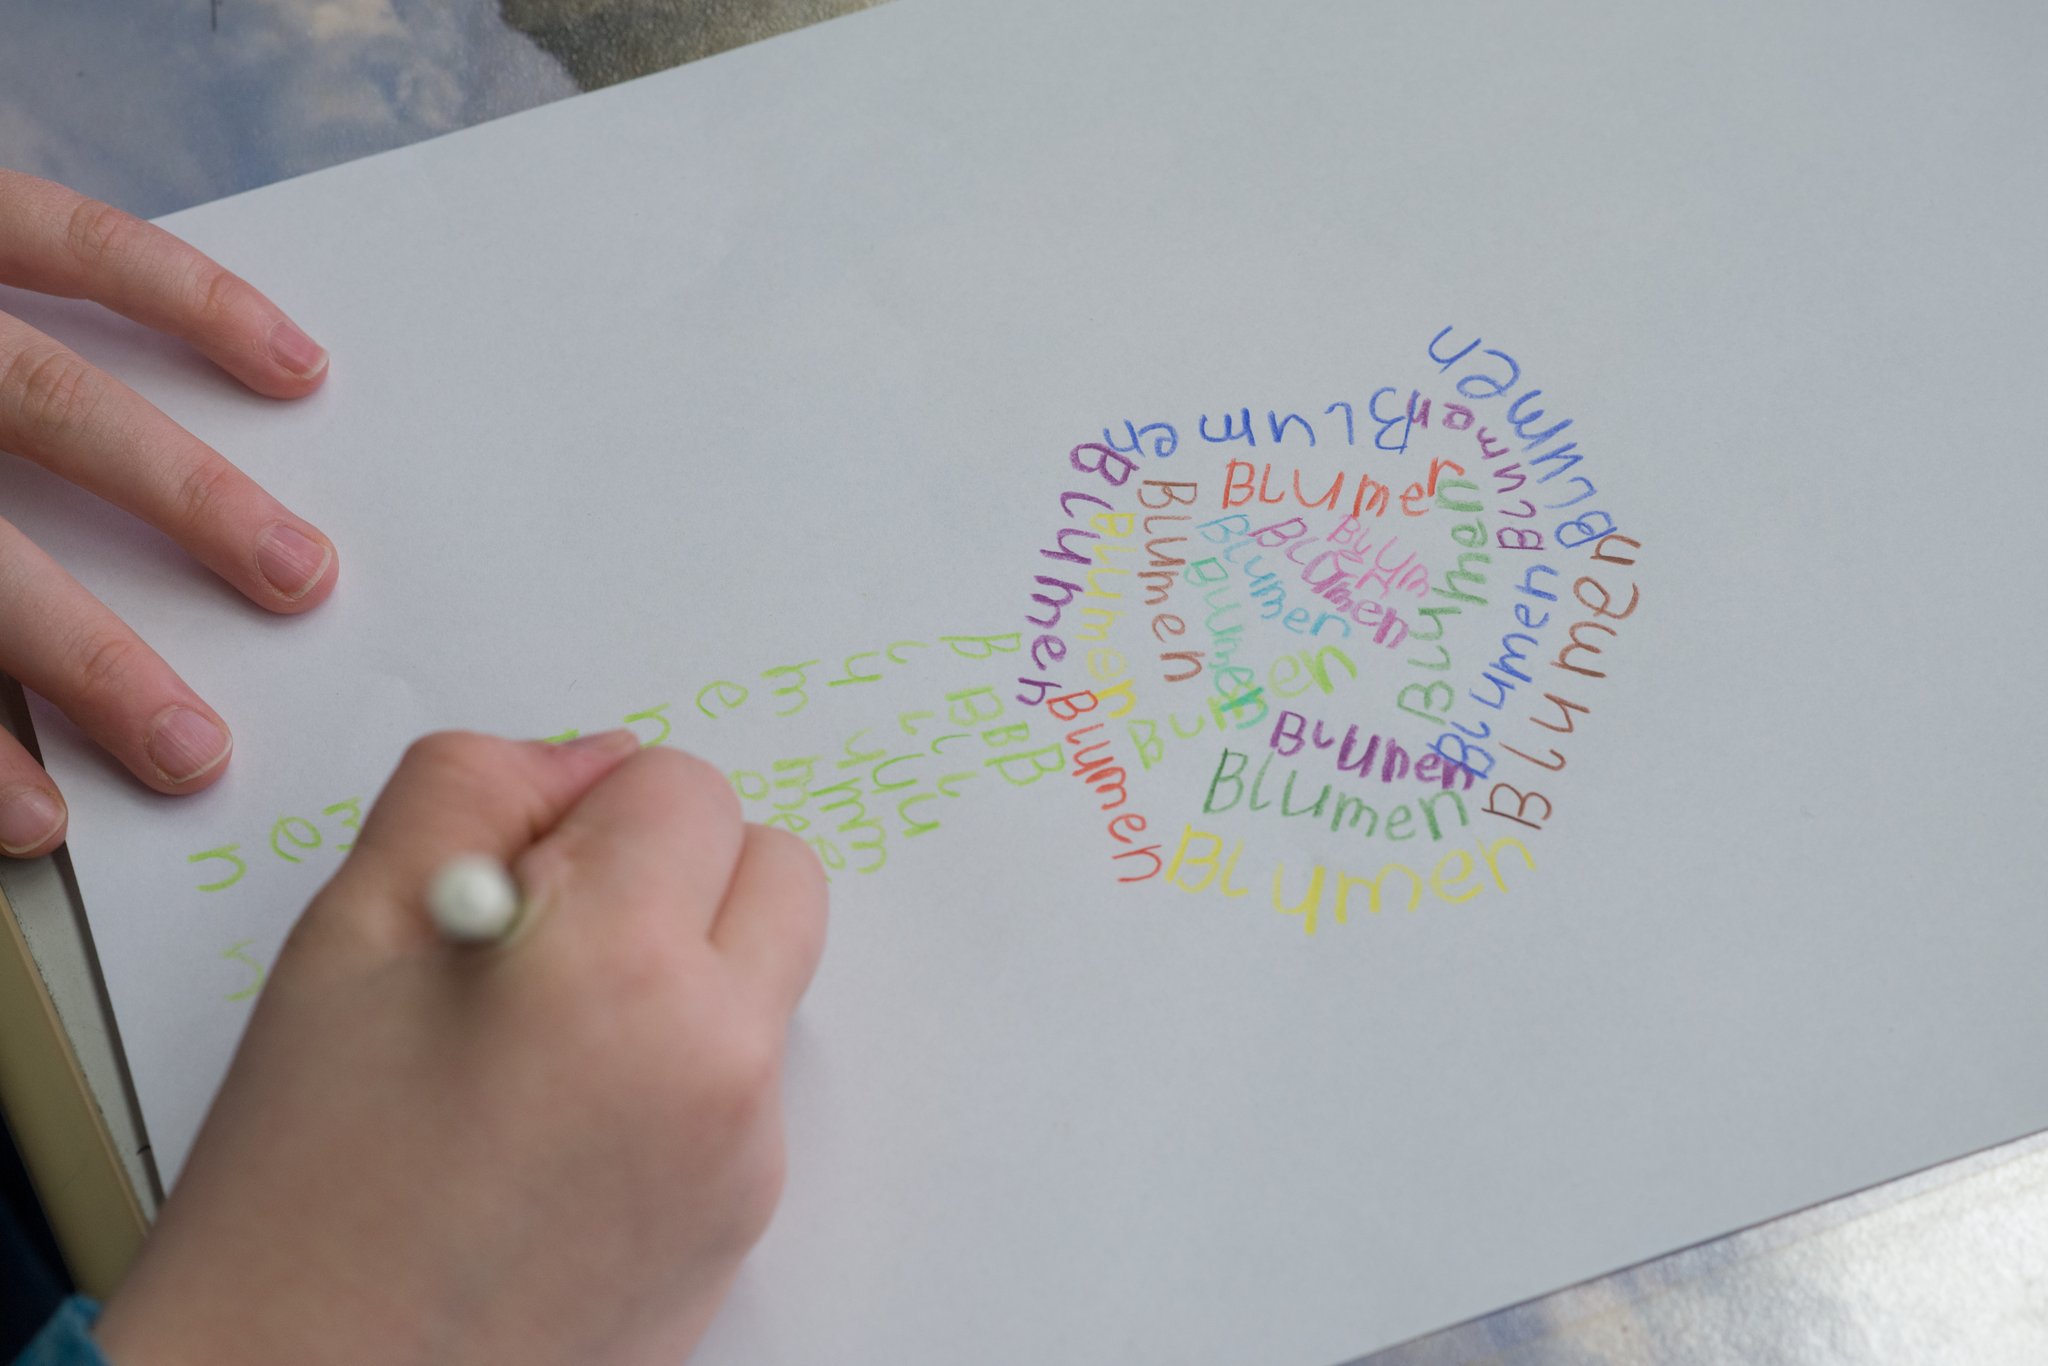 Blumen
Blumen
Blumen
Blumen
Blumen
Blumer
Blumen
Blumen
Blumen
Blumen
Blumen
Blumen
Blumen
Blumen
Blumen
Blumen
Blumen
Blumen
Blumen
Blumen
Blumen